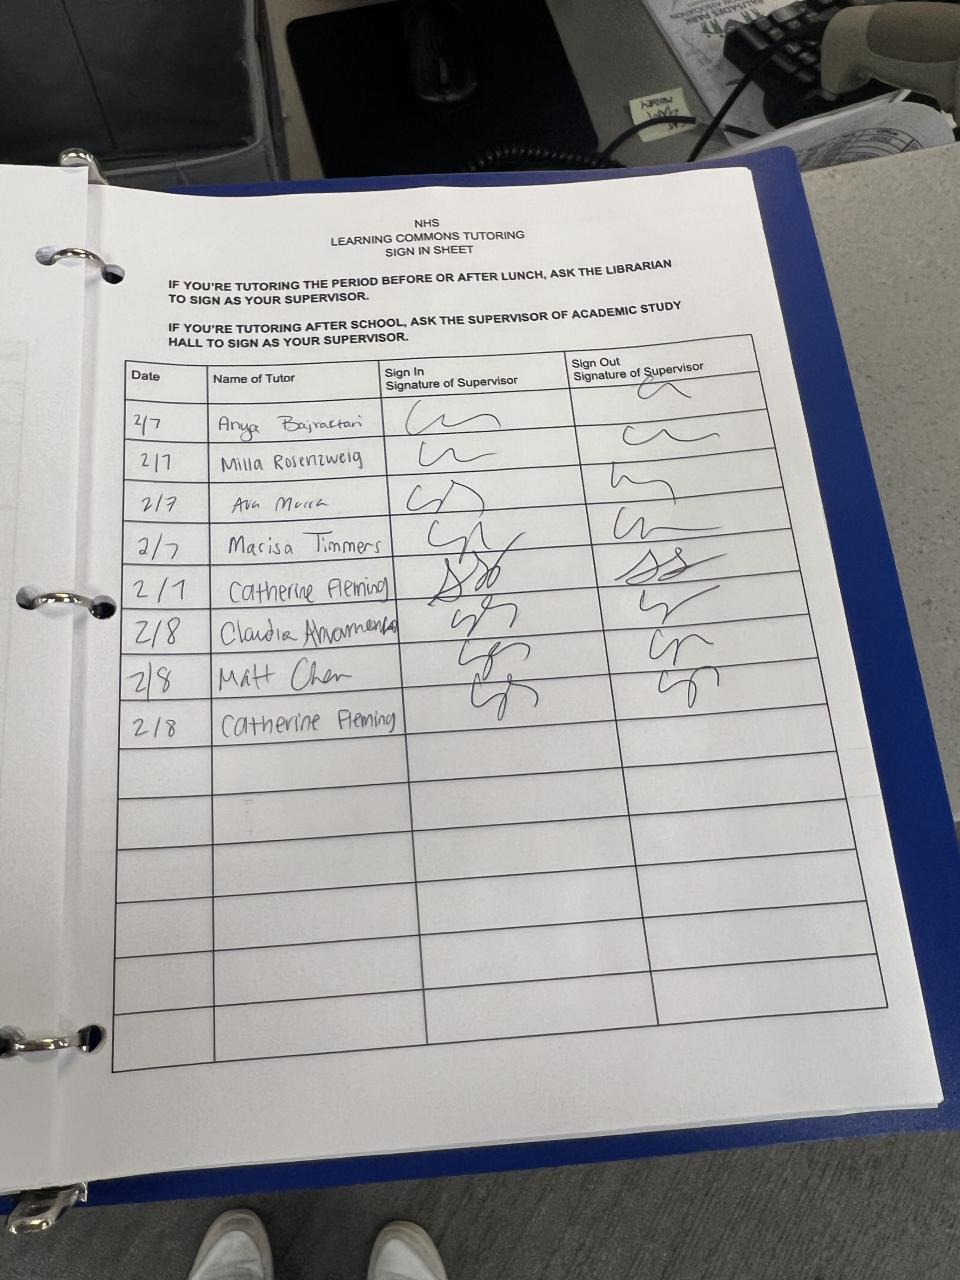 PALISADES PARK
ASSOCIATION
NHS
LEARNING COMMONS TUTORING
SIGN IN SHEET
IF YOU'RE TUTORING THE PERIOD BEFORE OR AFTER LUNCH, ASK THE LIBRARIAN
TO SIGN AS YOUR SUPERVISOR.
IF YOU'RE TUTORING AFTER SCHOOL, ASK THE SUPERVISOR OF ACADEMIC STUDY
HALL TO SIGN AS YOUR SUPERVISOR.
Date Name of Tutor Sign In Signature of Supervisor Sign Out Signature of Supervisor
2/7 Anya Bajraktari
2/7 Milla Rosenzweig
2/7 Ava
2/7 Marisa Timmers
2/7 Catherine Fleming
2/8 Claudia
2/8 Matt Chen
2/8 Catherine Fleming